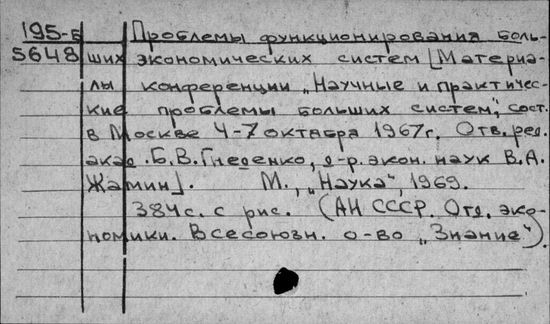 195-Б Проблемы функционирования боль-
5648 ших экономических систем [Материа-
лы конференции „Научные и практичес-
кие проблемы больших систем", сост.
в Москве 4-7 октября 1967г. Отв. ред.
акад. Б. В. Гнеденко, д-р. экон. наук В. А.
Жамин]. М., „Наука", 1969.
384 с. с рис. (АН СССР. Отд. эко-
номики. Всесоюзн. о-во „Знание").